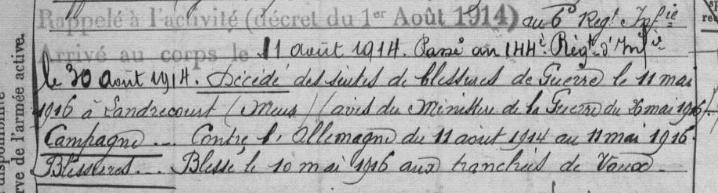 Rappelé à l'activité (décret du 1er Août 1914) au 6e Regt Infie
Arrivé au corps le 11 août 1914. Passé au 144e Régt d'Infie
le 30 août 1914. Décédé des suites de blessures de Guerre le 11 mai
1916 à Landrecourt (Meuse) (avis du Ministre de la Guerre du 26 mai 1916)
Campagne... Contre l'Allemagne du 11 août 1914 au 11 mai 1916.
Blessures... Blessé le 10 mai 1916 aux tranchées de Vaux.
disponible
rve de l'armée active.